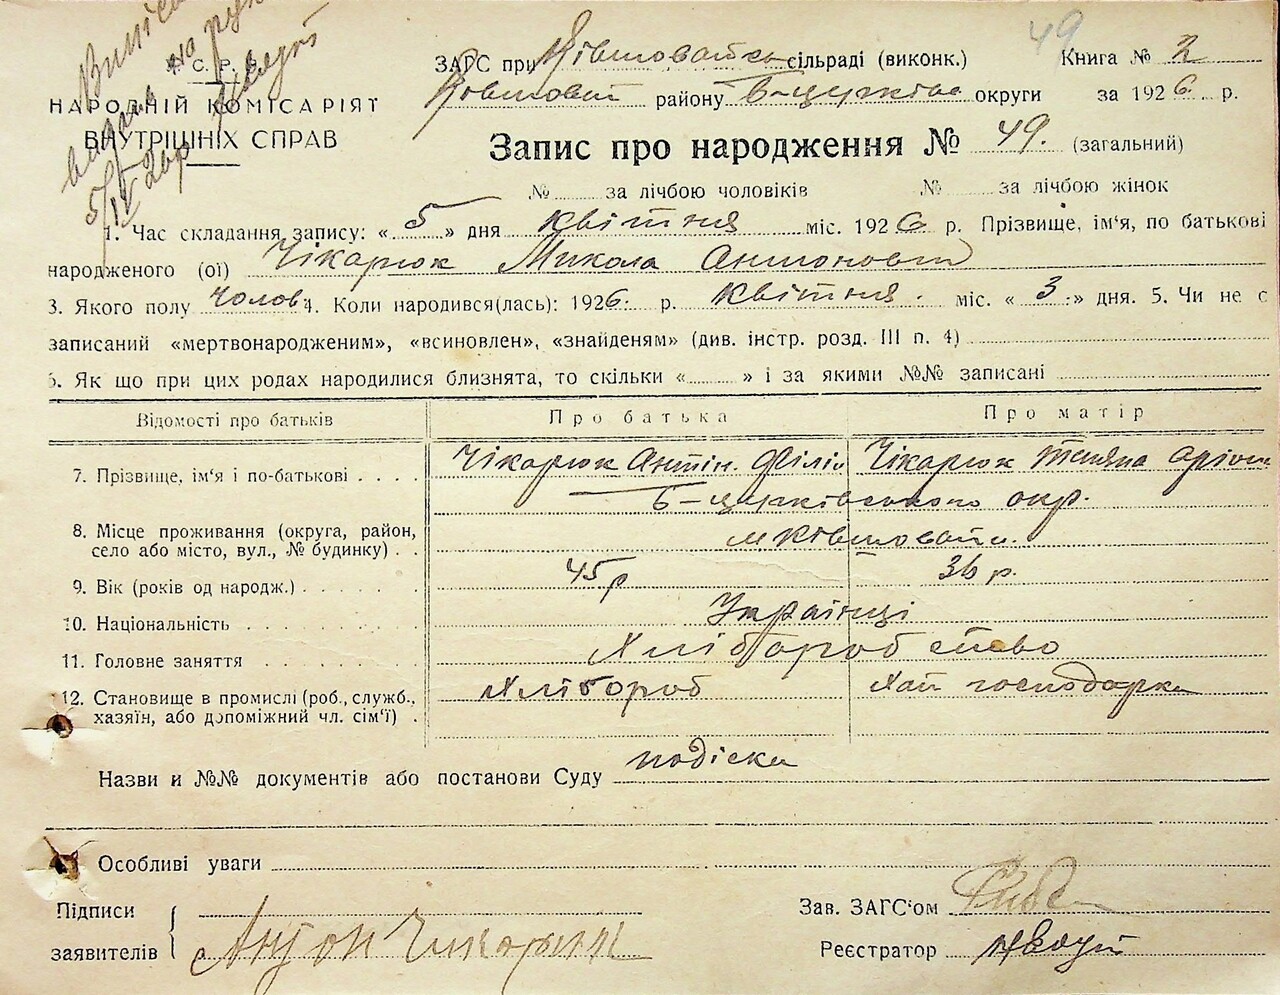 49
У. С. Р. Р.
НАРОДНІЙ КОМІСАРІЯТ
ВНУТРІШНІХ СПРАВ
5/IV 26р
ЗАГС при Ківшовайск сільраді (виконк.) Книга № 2
Ківшоват району Б-церківс округи за 1926 р.
Запис про народження № 49. (загальний)
№ за лічбою чоловіків № за лічбою жінок
1. Час складання запису: «5» дня квітня міс. 1926 р. Прізвище, ім'я, по батькові
народженого (ої) Чікарюк Микола Антонович
3. Якого полу чолов. 4. Коли народився(лась): 1926. р. квітня. міс. «3.» дня. 5. Чи не є
записаний «мертвонародженим», «всиновлен», «знайденям» (див. інстр. розд. III п. 4)
6. Як що при цих родах народилися близнята, то скільки « » і за якими №№ записані
Відомості про батьків Про батька Про матір
7. Прізвище, ім'я і по-батькові . . . . Чікарюк Антін. Філіп Чікарюк Тетяна
Б-церківського окр.
8. Місце проживання (округа, район,
село або місто, вул., № будинку) . . м Ківшовати.
9. Вік (років од народж.) . . . . . . 45 р 36 р.
10. Національність . . . . . . . . Українці
11. Головне заняття . . . . . . . Хліборобство
12. Становище в промислі (роб., служб., Хлібороб Хат господарка
хазяїн, або допоміжний чл. сім'ї) .
Назви и №№ документів або постанови Суду подіска
Особливі уваги
Підписи
заявителів Антон Чикарюк
Зав. ЗАГС'ом
Реєстратор